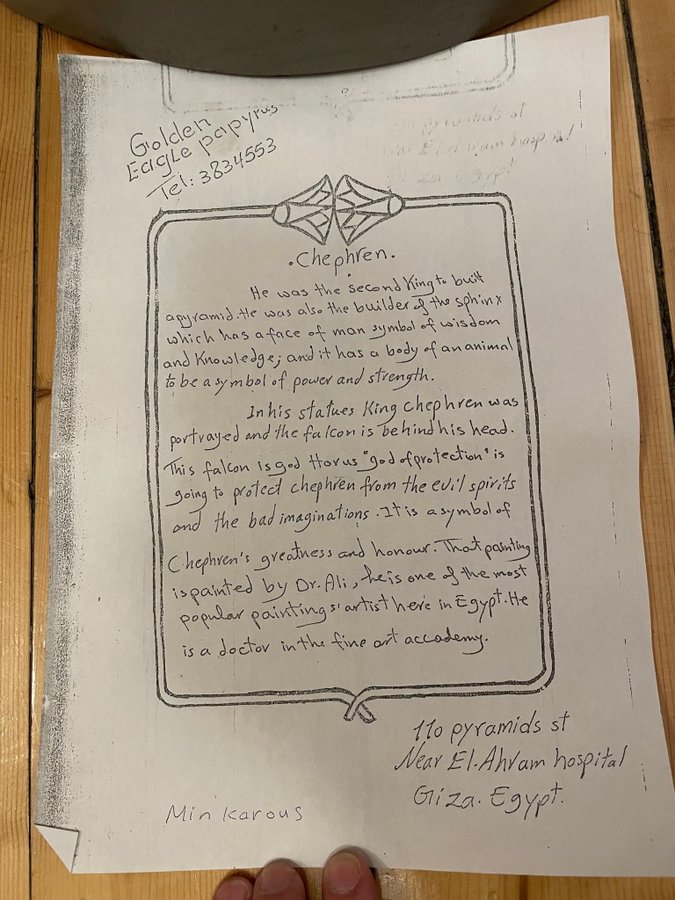 Golden
Eagle papyrus
Tel: 3834553
.Chephren.
He was the second King to built
apyramid.He was also the builder of the sphinx
which has a face of man symbol of wisdom
and Knowledge; and it has a body of an animal
to be a symbol of power and strength.
In his statues King chephren was
portrayed and the falcon is behind his head.
This falcon is god Horus "god of protection" is
going to protect chephren from the evil spirits
and the bad imaginations. It is a symbol of
Chephren's greatness and honour. That painting
is painted by Dr. Ali, he is one of the most
popular paintings' artist here in Egypt. He
is a doctor in the fine art accademy.
110 pyramids st
Near El.Ahram hospital
Giza. Egypt.
Min Karous